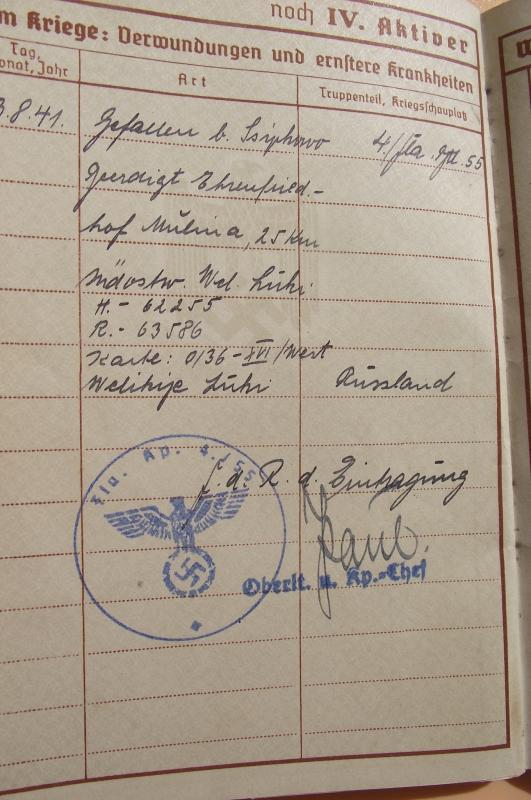 noch IV. Aktiver
m Kriege: Verwundungen und ernstere Krankheiten
Tag,
onat, Jahr
Art
Truppenteil, Kriegsschauplatz
3.8.41.
Gefallen b. Ssiphowo
4/Fla. Btl. 55
Beerdigt Ehrenfried-
hof Mulina, 25 km
südostw. Wel. Luki
H. - 62255
R. - 63586
Karte: O/36-XVI/West
Welikije Luki
Russland
Fla. Kp. 4./55
f. d. R. d. Eintragung
Oberlt. u. Kp.-Chef